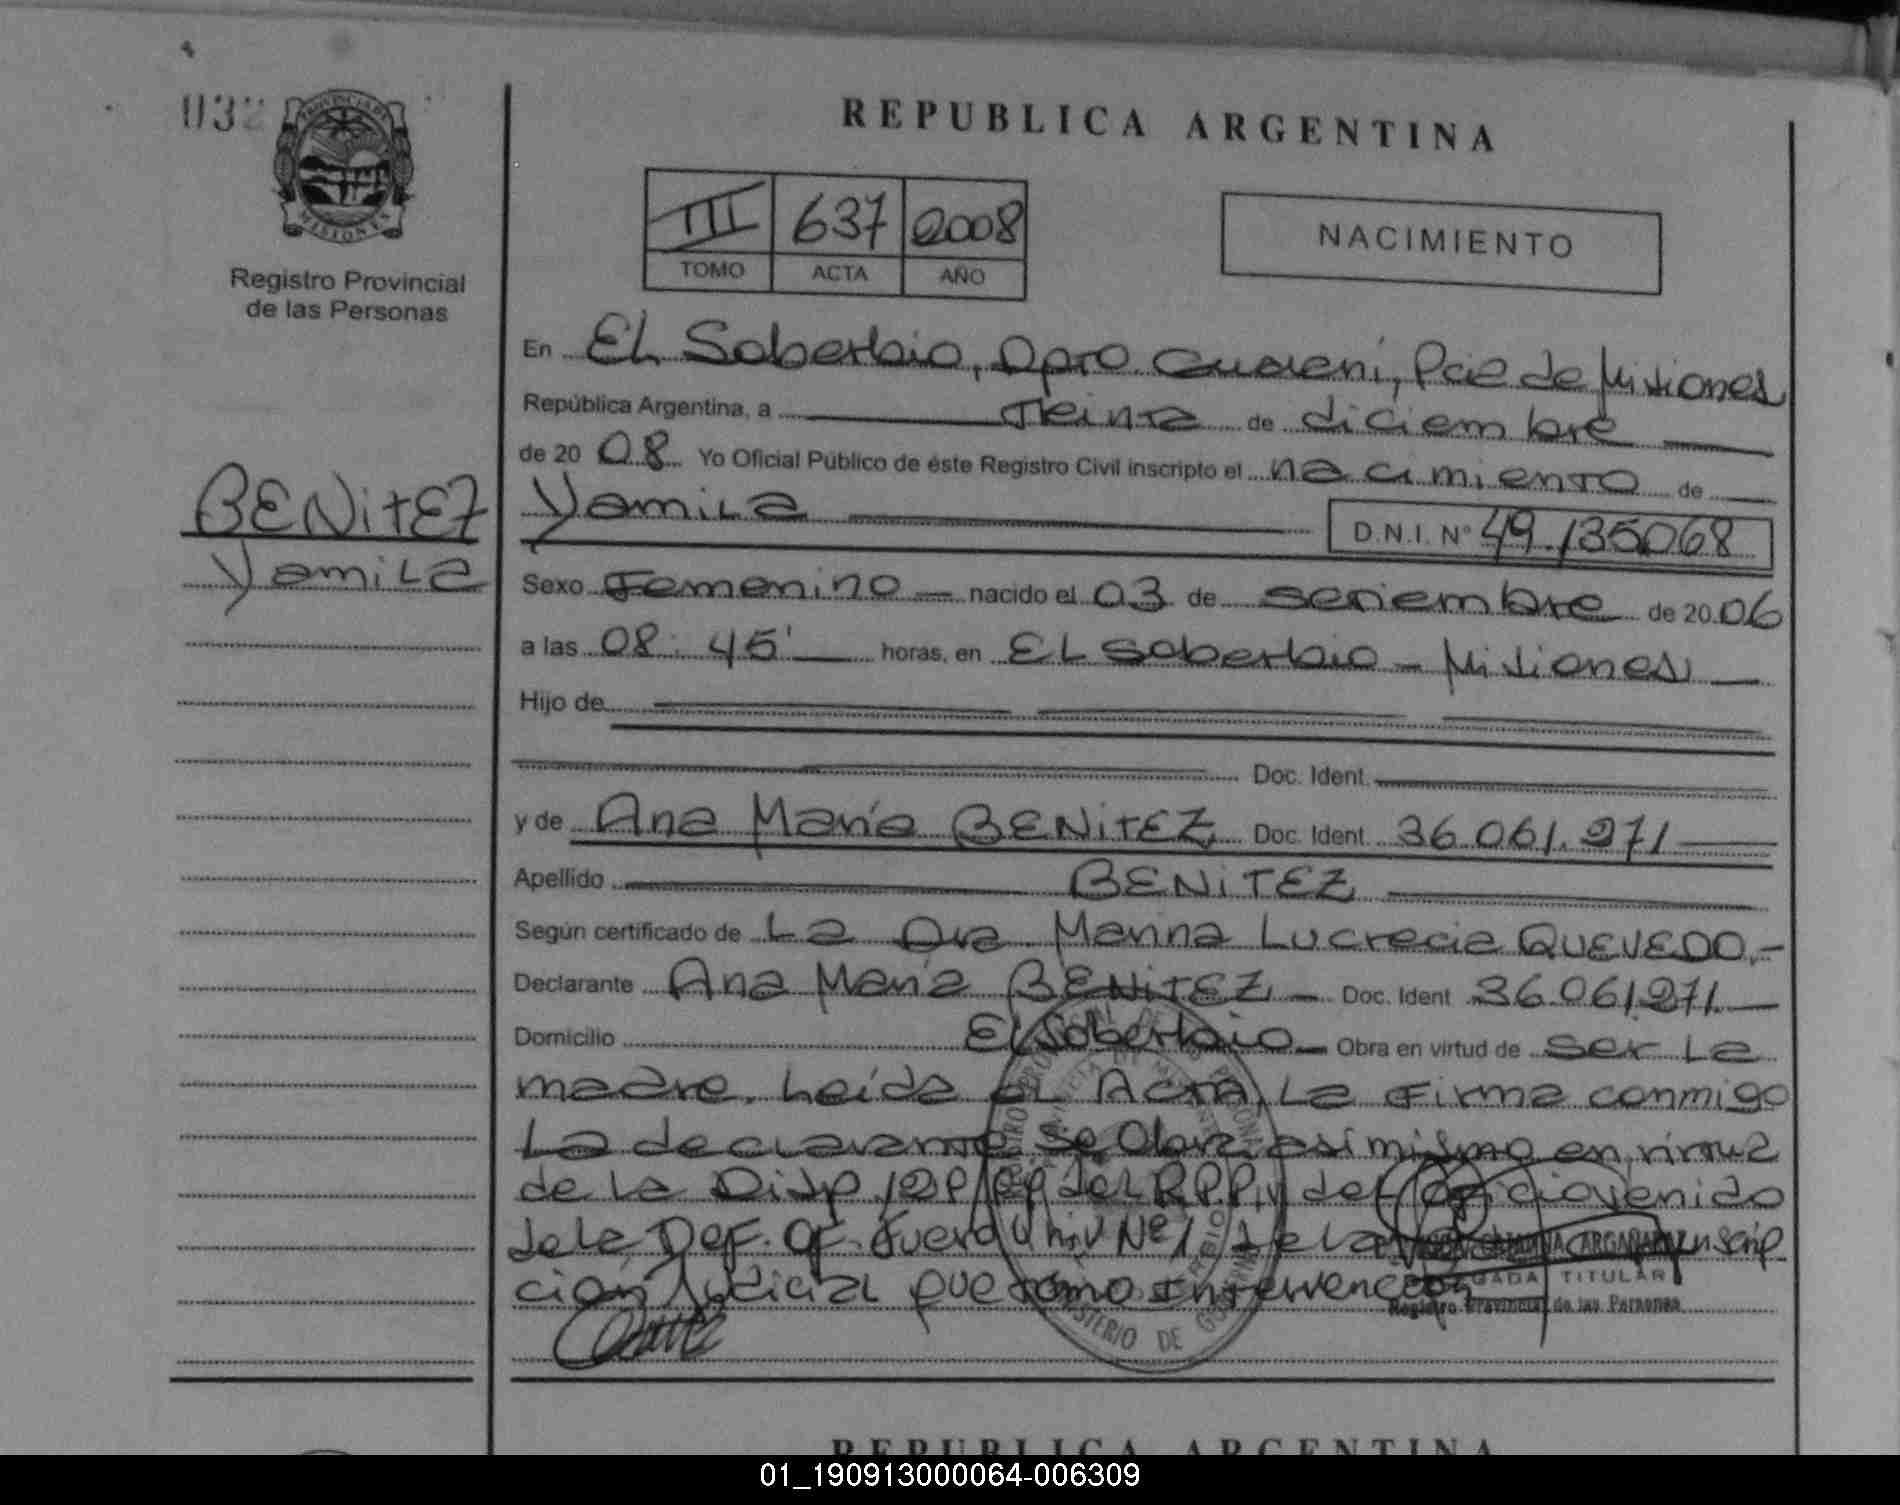 032
PROVINCIA DE
MISIONES
Registro Provincial
de las Personas
BENITEZ
Yamila
REPUBLICA ARGENTINA
III 637 2008
TOMO ACTA AÑO
NACIMIENTO
En El Soberbio, Dpto. Guaraní, Pcie de Misiones
República Argentina, a Treinta de diciembre
de 20 08 Yo Oficial Público de éste Registro Civil inscripto el nacimiento de
Yamila D.N.I. Nº 49.135068
Sexo Femenino - nacido el 03 de setiembre de 20 06
a las 08:45' horas, en El Soberbio - Misiones
Hijo de
Doc. Ident.
y de Ana María BENITEZ Doc. Ident. 36.061.271
Apellido BENITEZ
Según certificado de La Dra Marina Lucrecia QUEVEDO.-
Declarante Ana María BENITEZ - Doc. Ident 36.061.271.
Domicilio El Soberbio - Obra en virtud de ser la
madre. Leída el Acta, la firma conmigo
la declarante Se Obra asimismo en virtud
de la Disp del R.P.P. y del oficio venido
de la Def. Of. Fuero Univ Nº 1 de la
cion Judicial que tomo Intervencion
TITULAR
Registro Provincial de las Personas
MINISTERIO DE
REPUBLICA ARGENTINA
01_190913000064-006309